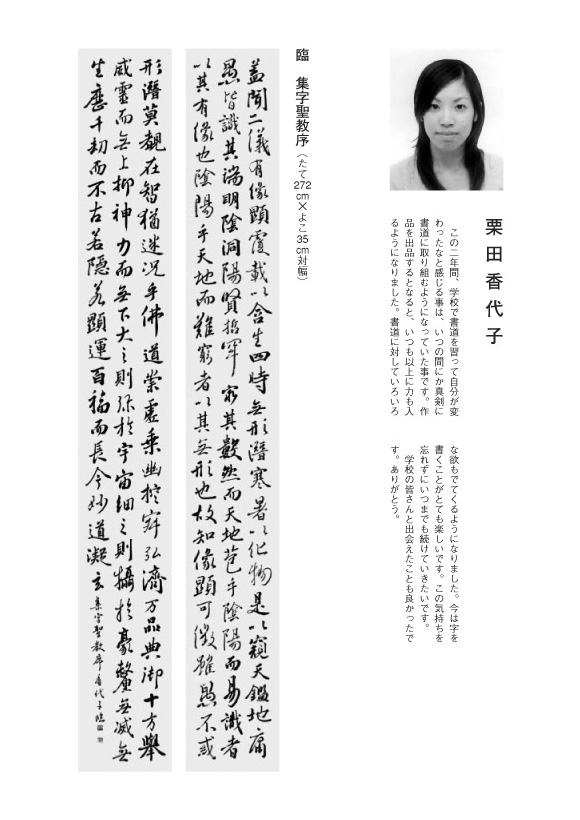 栗田香代子
この二年間、学校で書道を習って自分が変
わったなと感じる事は、いつの間にか真剣に
書道に取り組むようになっていた事です。作
品を出品するとなると、いつも以上に力も入
るようになりました。書道に対していろいろ
な欲もでてくるようになりました。今は字を
書くことがとても楽しいです。この気持ちを
忘れずにいつまでも続けていきたいです。
学校の皆さんと出会えたことも良かったで
す。ありがとう。
臨 集字聖教序(たて272cm×よこ35cm対幅)
蓋聞二儀有像顯覆載以含生四時無形潛寒暑以化物是以窺天鑑地庸
愚皆識其端明陰洞陽賢哲罕窮其數然而天地苞乎陰陽而易識者
以其有像也陰陽乎天地而難窮者以其無形也故知像顯可徵雖愚不惑
形潛莫覩在智猶迷況乎佛道崇虛乘幽控寂弘濟万品典御十方舉
威靈而無上抑神力而無下大之則弥於宇宙細之則攝於豪釐無滅無
生歷千劫而不古若隱若顯運百福而長今妙道凝玄 集字聖教序 香代子臨